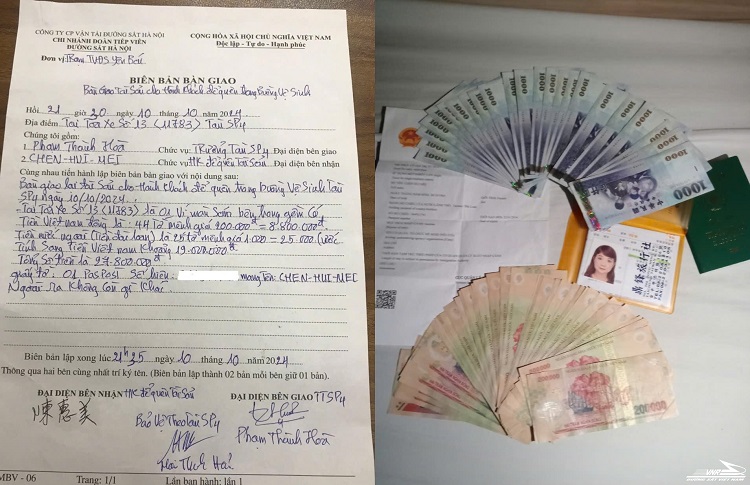 CÔNG TY CP VẬN TẢI ĐƯỜNG SẮT HÀ NỘI
CHI NHÁNH ĐOÀN TIẾP VIÊN
ĐƯỜNG SẮT HÀ NỘI
CỘNG HÒA XÃ HỘI CHỦ NGHĨA VIỆT NAM
Độc lập - Tự do - Hạnh phúc
Đơn vị: Trạm TVĐS Yên Bái
BIÊN BẢN BÀN GIAO
Bàn giao tài sản cho hành khách để quên trong buồng vệ sinh
Hồi 21 giờ 30 ngày 10 tháng 10 năm 2024
Địa điểm: Tại Toa xe số 13 (11783) Tàu SP4
Chúng tôi gồm:
1. Phạm Thành Hòa Chức vụ: Trưởng Tàu SP4 Đại diện bên giao
2. CHEN-HUI-MEI Chức vụ: HK để quên Tài sản Đại diện bên nhận
Cùng nhau tiến hành lập biên bản bàn giao với nội dung sau:
Bàn giao lại tài sản cho hành khách để quên trong buồng vệ sinh Tàu
SP4 ngày 10/10/2024.
- Tại Toa xe số 13 (11783) là 01 ví màu bên trong gồm có
Tiền Việt nam đồng là: 44 tờ mệnh giá 200.000đ = 8.800.000đ
Tiền nước ngoài (Tiền đài loan) là 25 tờ mệnh giá 1.000 = 25.000 (ước
Tính sang tiền Việt nam khoảng 19.000.000đ
Tổng số tiền là 27.800.000đ
giấy tờ: 01 PasPost số hiệu: mang tên: CHEN-HUI-MEI
Ngoài ra không còn gì khác.
Biên bản lập xong lúc 21h35 ngày 10 tháng 10 năm 2024
Thông qua hai bên cùng nhất trí ký tên. (Biên bản lập thành 02 bản mỗi bên giữ 01 bản).
ĐẠI DIỆN BÊN NHẬN HK để quên Tài sản
ĐẠI DIỆN BÊN GIAO TTSP4
陳惠美
Bảo vệ Theo Tàu SP4
Phạm Thành Hòa
MBV - 06 Trang: 1/1 Lần ban hành: lần 1
1000
1000
200000
旅行社
VNR
ĐƯỜNG SẮT VIỆT NAM